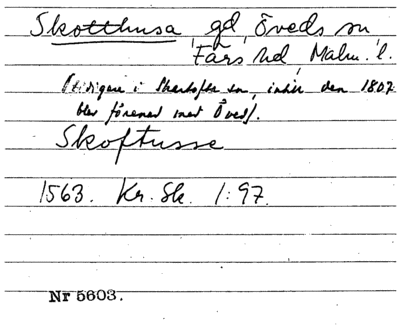 Skotthusa, gd, Öveds sn
Färs hd, Malm. l.
Tidigare i Skartofta sn, innan den 1807
blev förenad med Öved s.
Skoftusse
1563. Kr. Sk. 1:97.
Nr 5603.